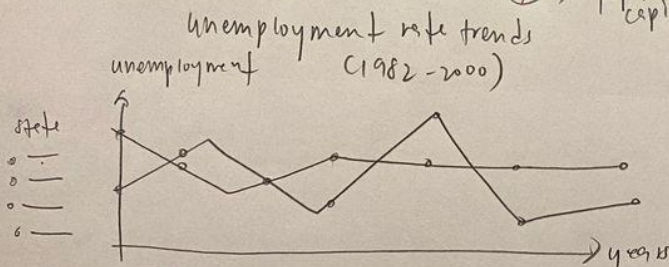 capi
unemployment rate trends
unemployment (1982-2000)
state
years